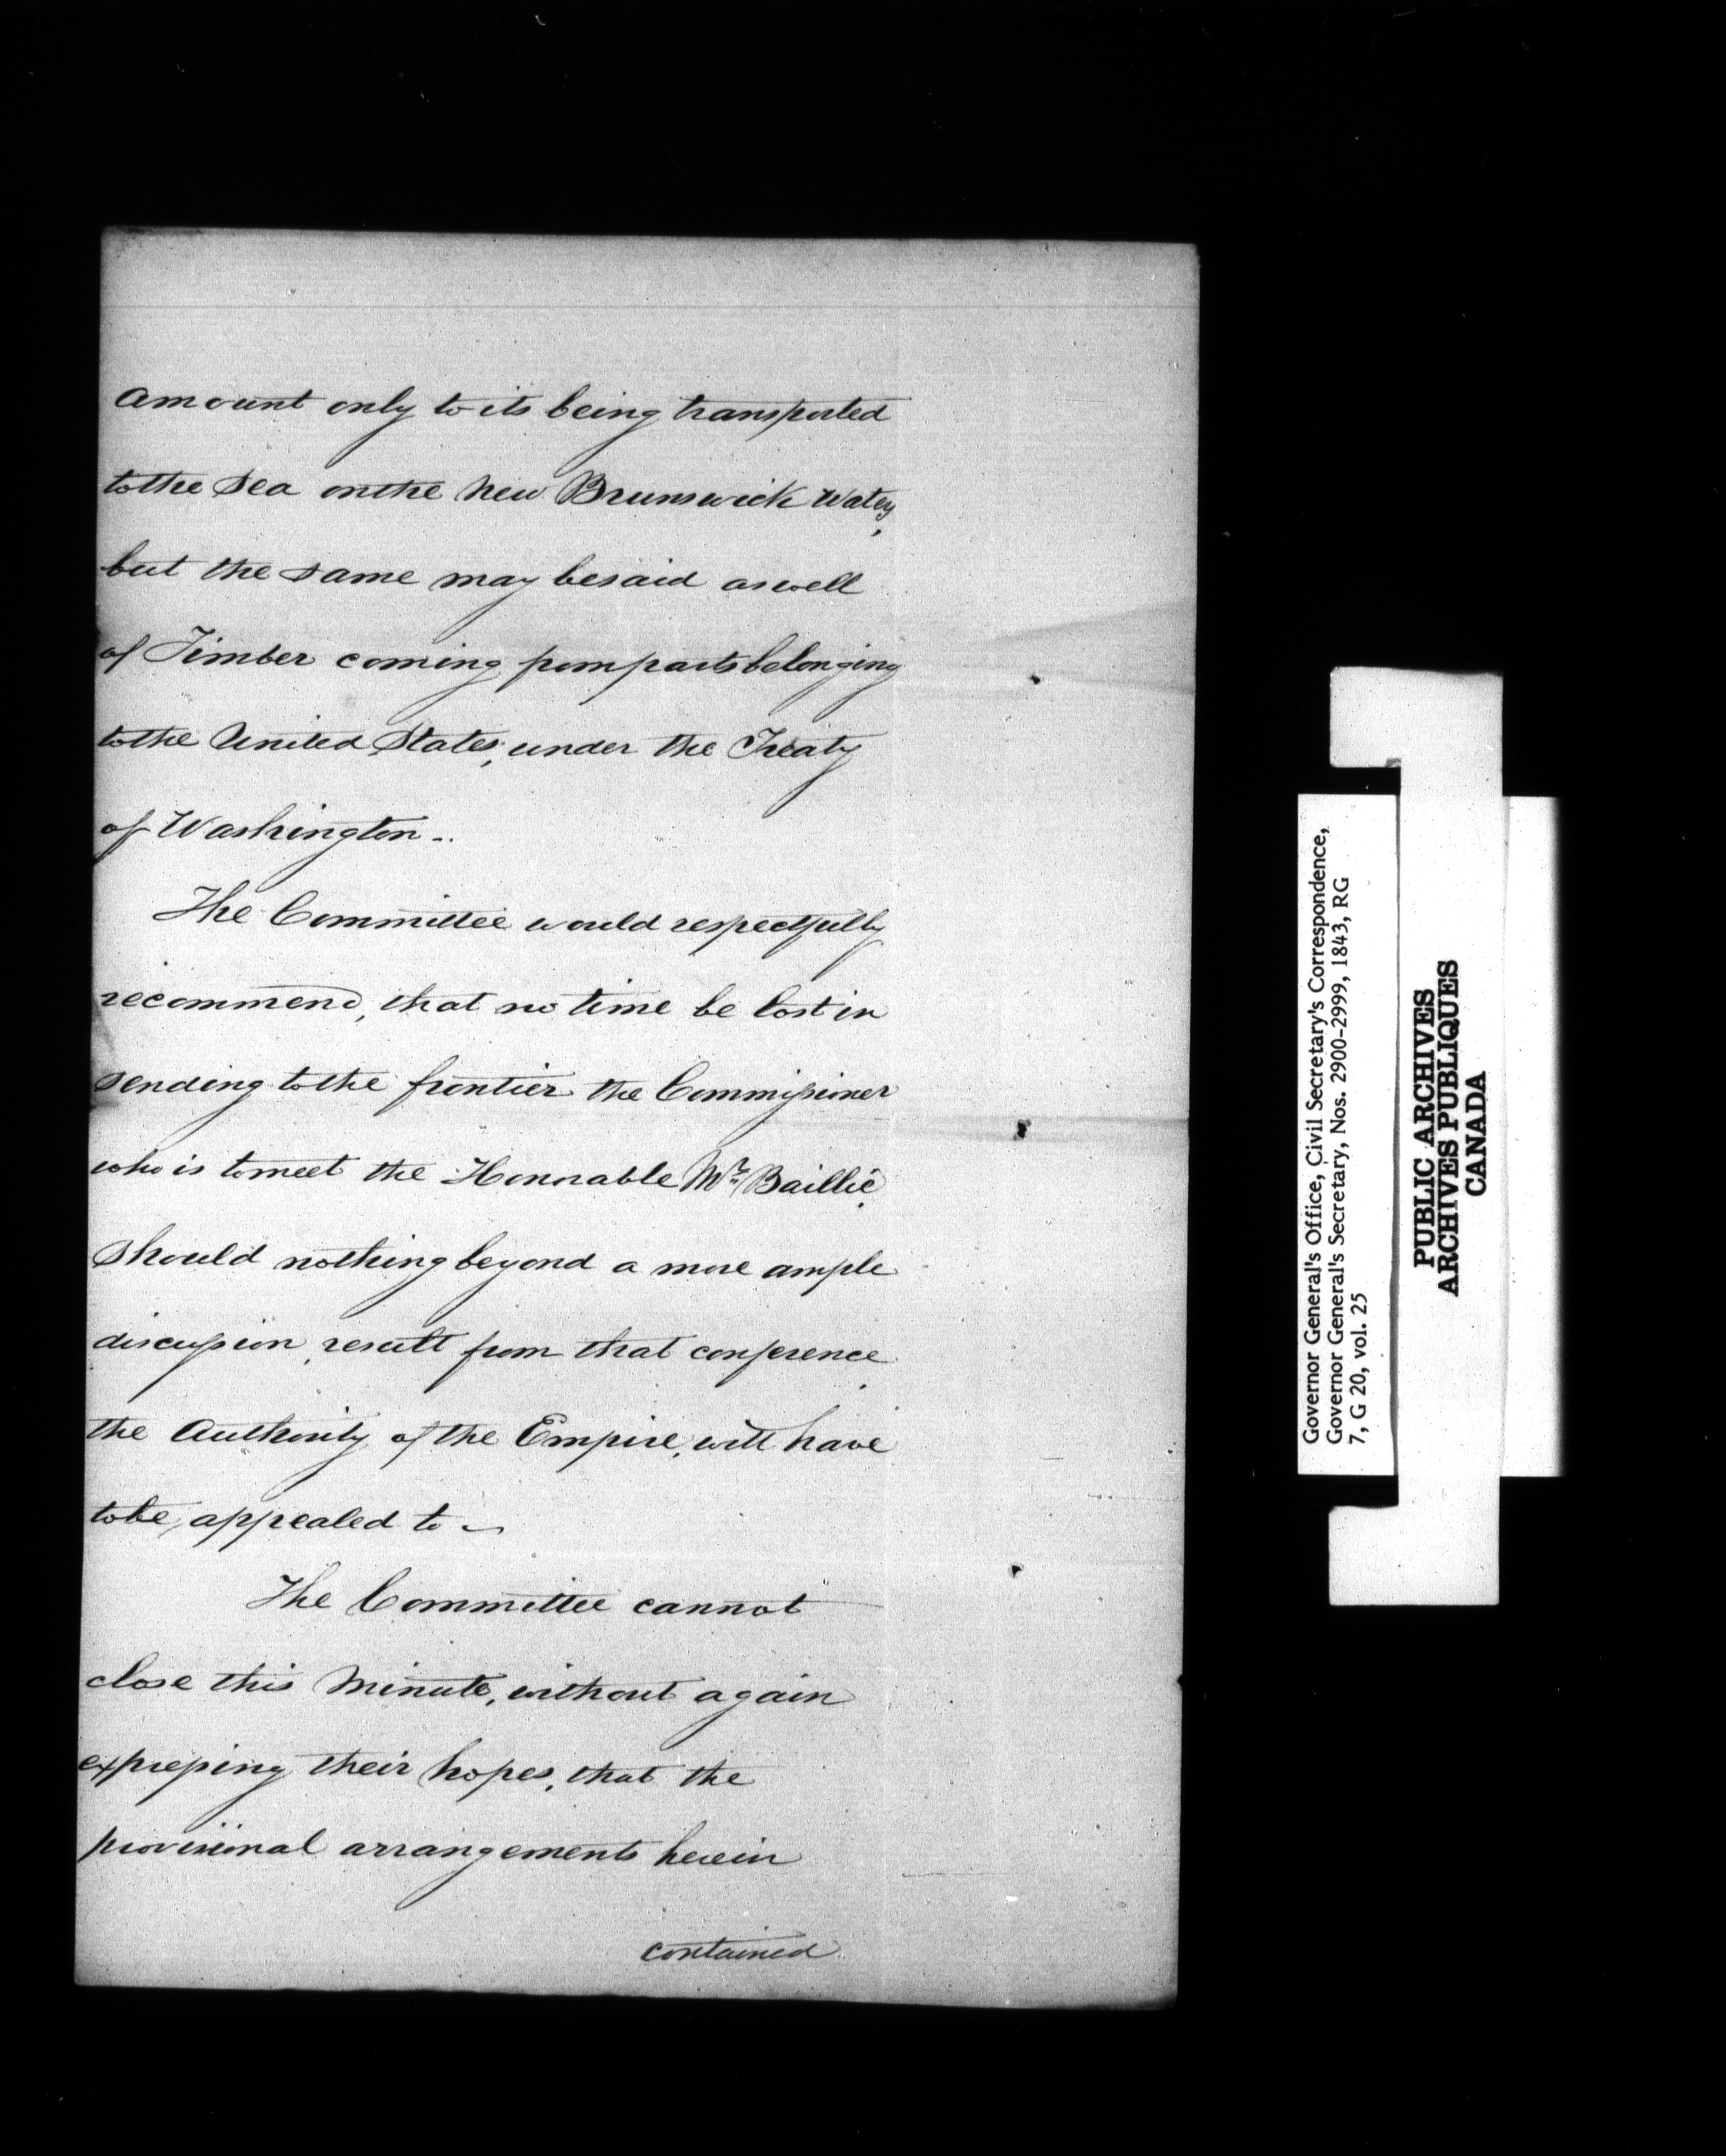 amount only to its being transported
to the Sea on the New Brunswick Waters,
but the same may be said as well
of Timber coming from parts belonging
to the United States, under the Treaty
of Washington –.
The Committee would respectfully
recommend, that no time be lost in
sending to the frontier the Commissioner
who is to meet the Honorable Mr. Baillie.
Should nothing beyond a more ample
discussion, result from that conference
the Authority of the Empire, will have
to be, appealed to ~
The Committee cannot
close this Minute, without again
expressing their hopes, that the
provisional arrangements herein
contained
Governor General's Office, Civil Secretary's Correspondence,
Governor General's Secretary, Nos. 2900-2999, 1843, RG
7, G 20, vol. 25
PUBLIC ARCHIVES
ARCHIVES PUBLIQUES
CANADA